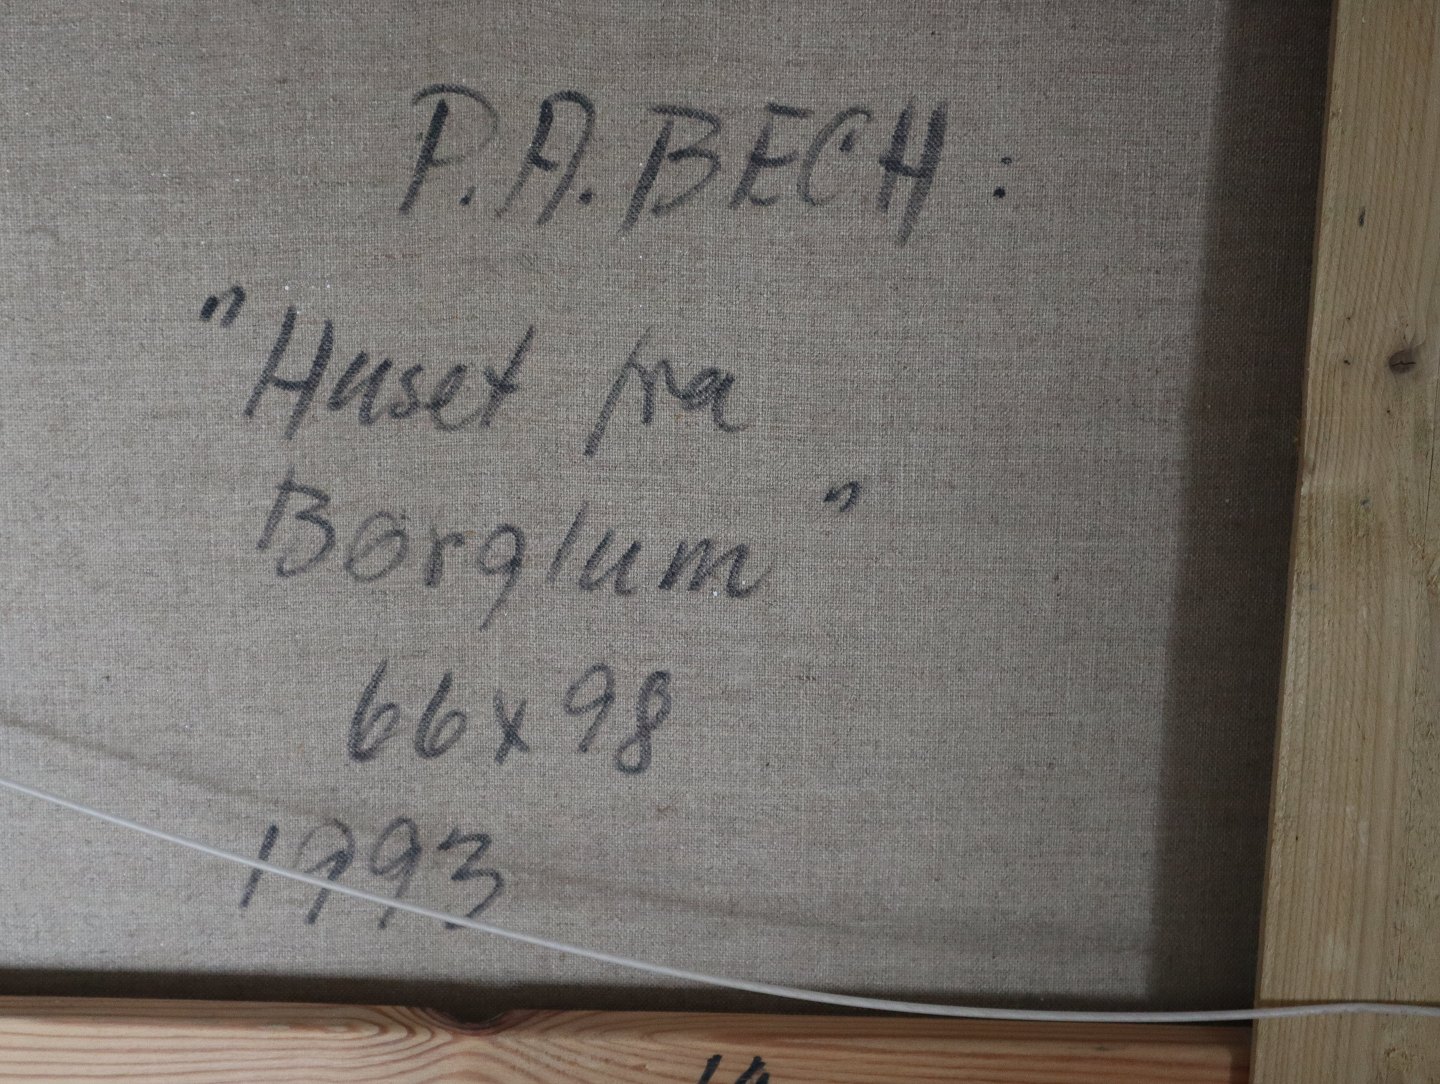 P.A. BECH:
"Huset fra
Børglum"
66 x 98
1993